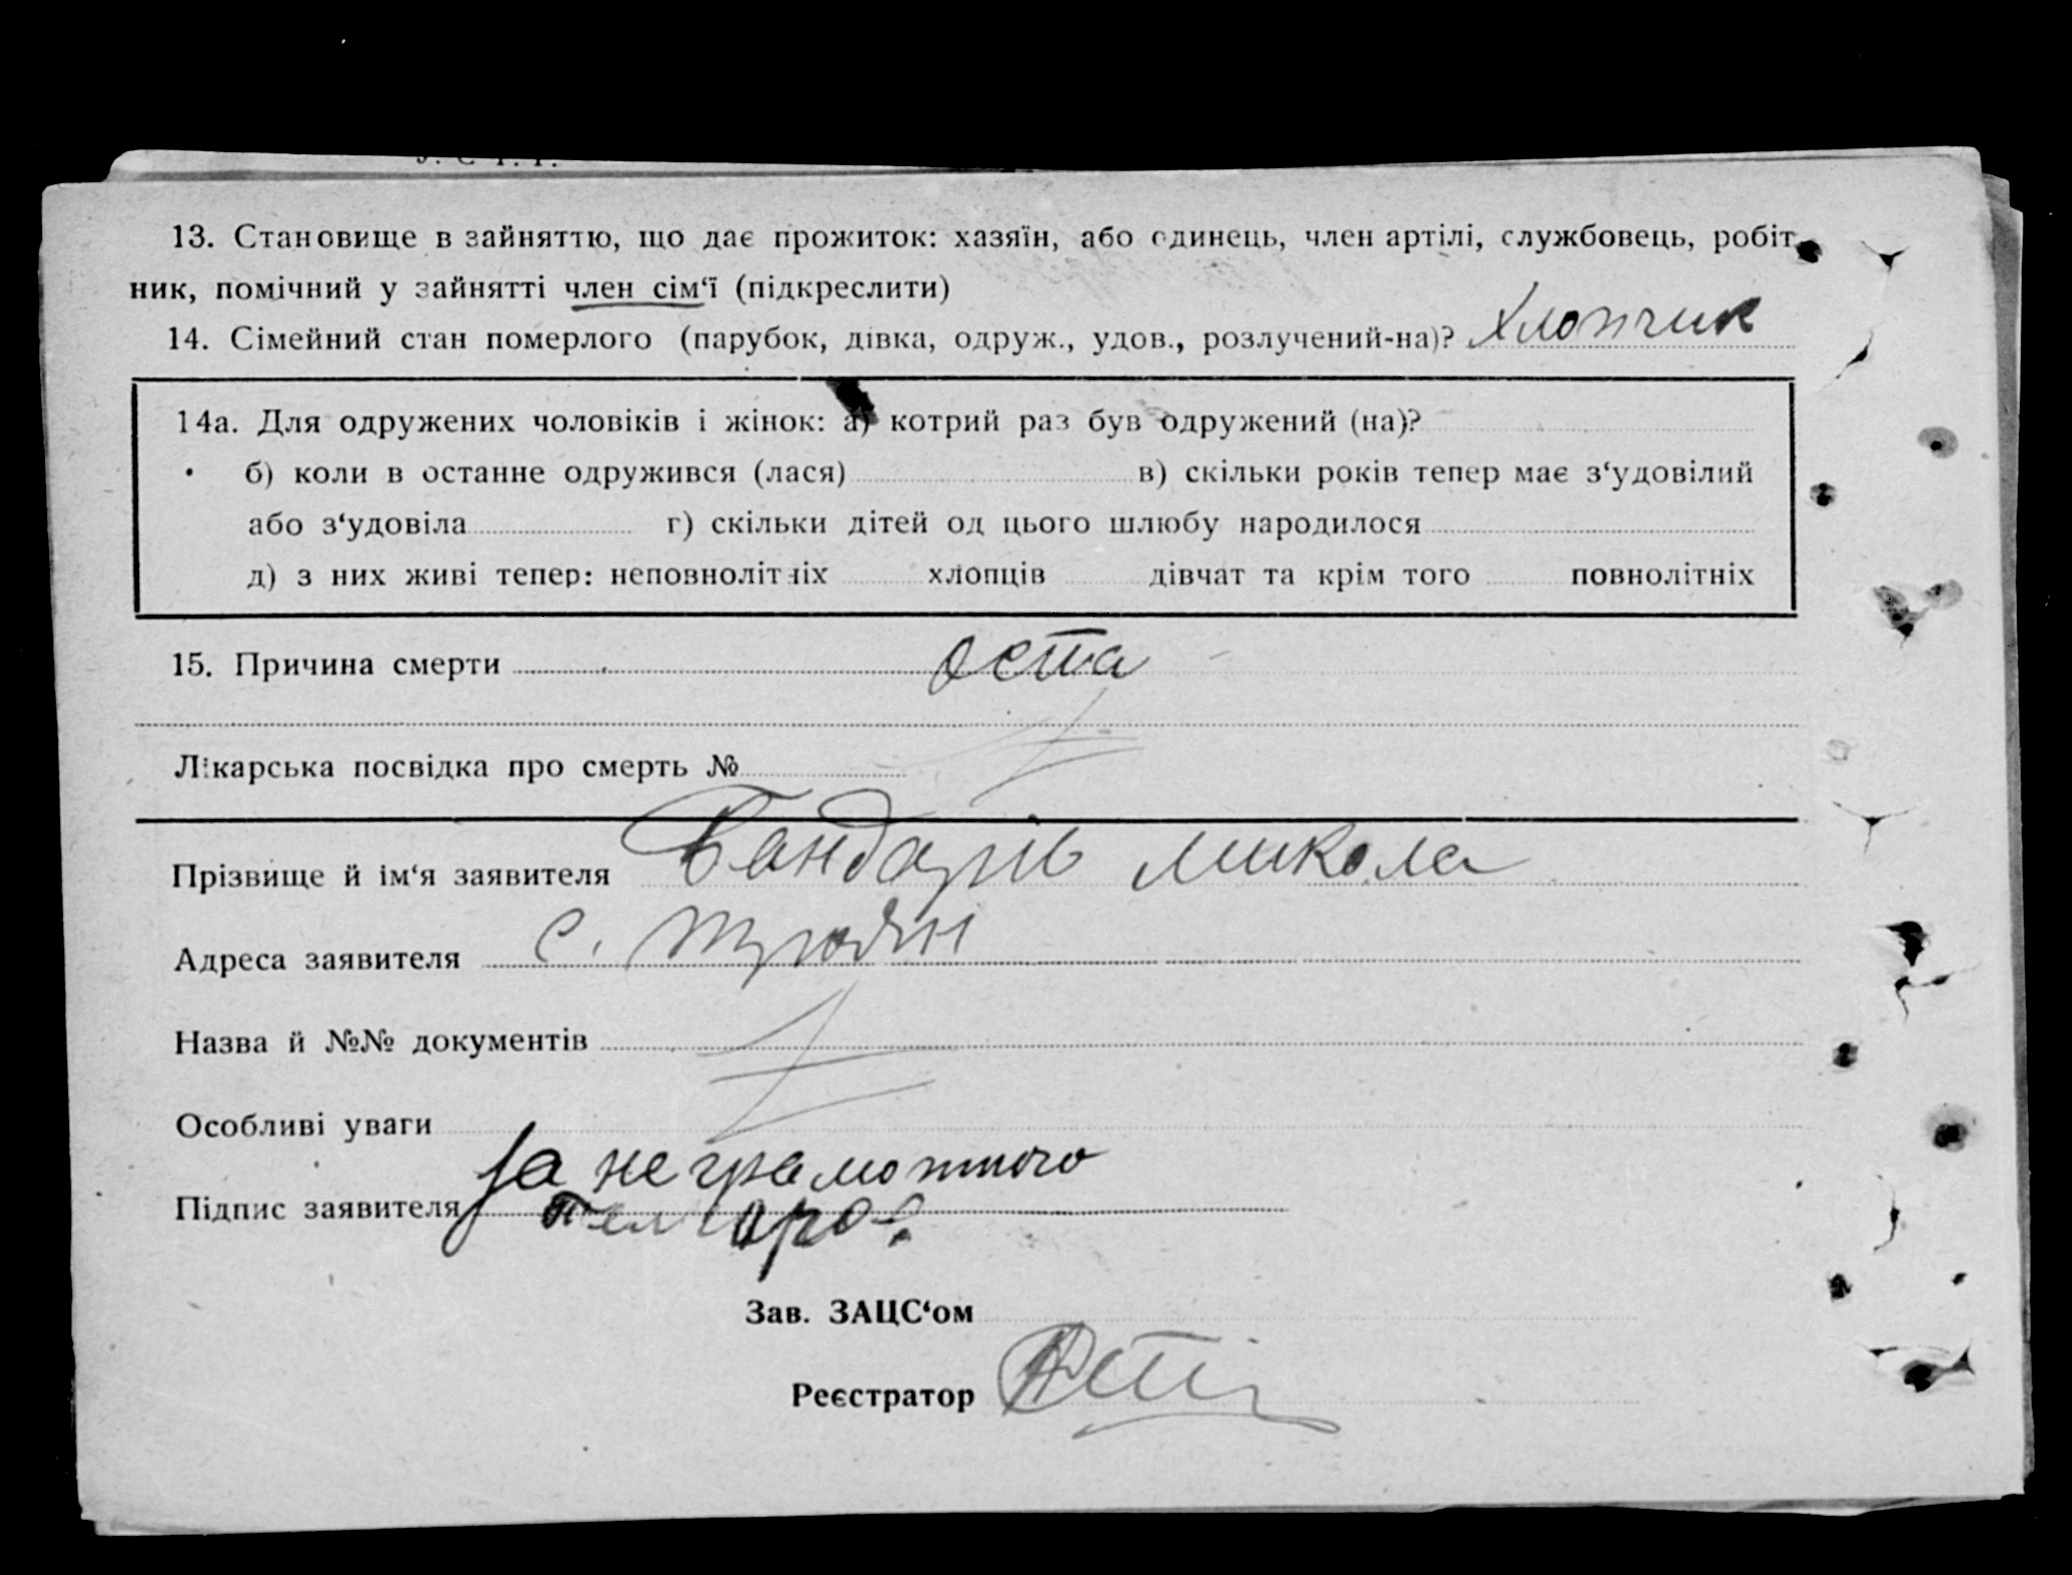 13. Становище в зайняттю, що дає прожиток: хазяїн, або одинець, член артілі, службовець, робіт
ник, помічний у зайнятті член сім‘ї (підкреслити)
14. Сімейний стан померлого (парубок, дівка, одруж., удов., розлучений-на)? Хлопчик
14а. Для одружених чоловіків і жінок: а) котрий раз був одружений (на)?
б) коли в останне одружився (лася) в) скільки років тепер має з‘удовілий
або з‘удовіла г) скільки дітей од цього шлюбу народилося
д) з них живі тепер: неповнолітніх хлопців дівчат та крім того повнолітніх
15. Причина смерти оспа
Лікарська посвідка про смерть №
Прізвище й ім‘я заявителя Бандарів Микола
Адреса заявителя с. Трояни
Назва й №№ документів
Особливі уваги
За неграмотного
Підпис заявителя
Зав. ЗАЦС‘ом
Реєстратор